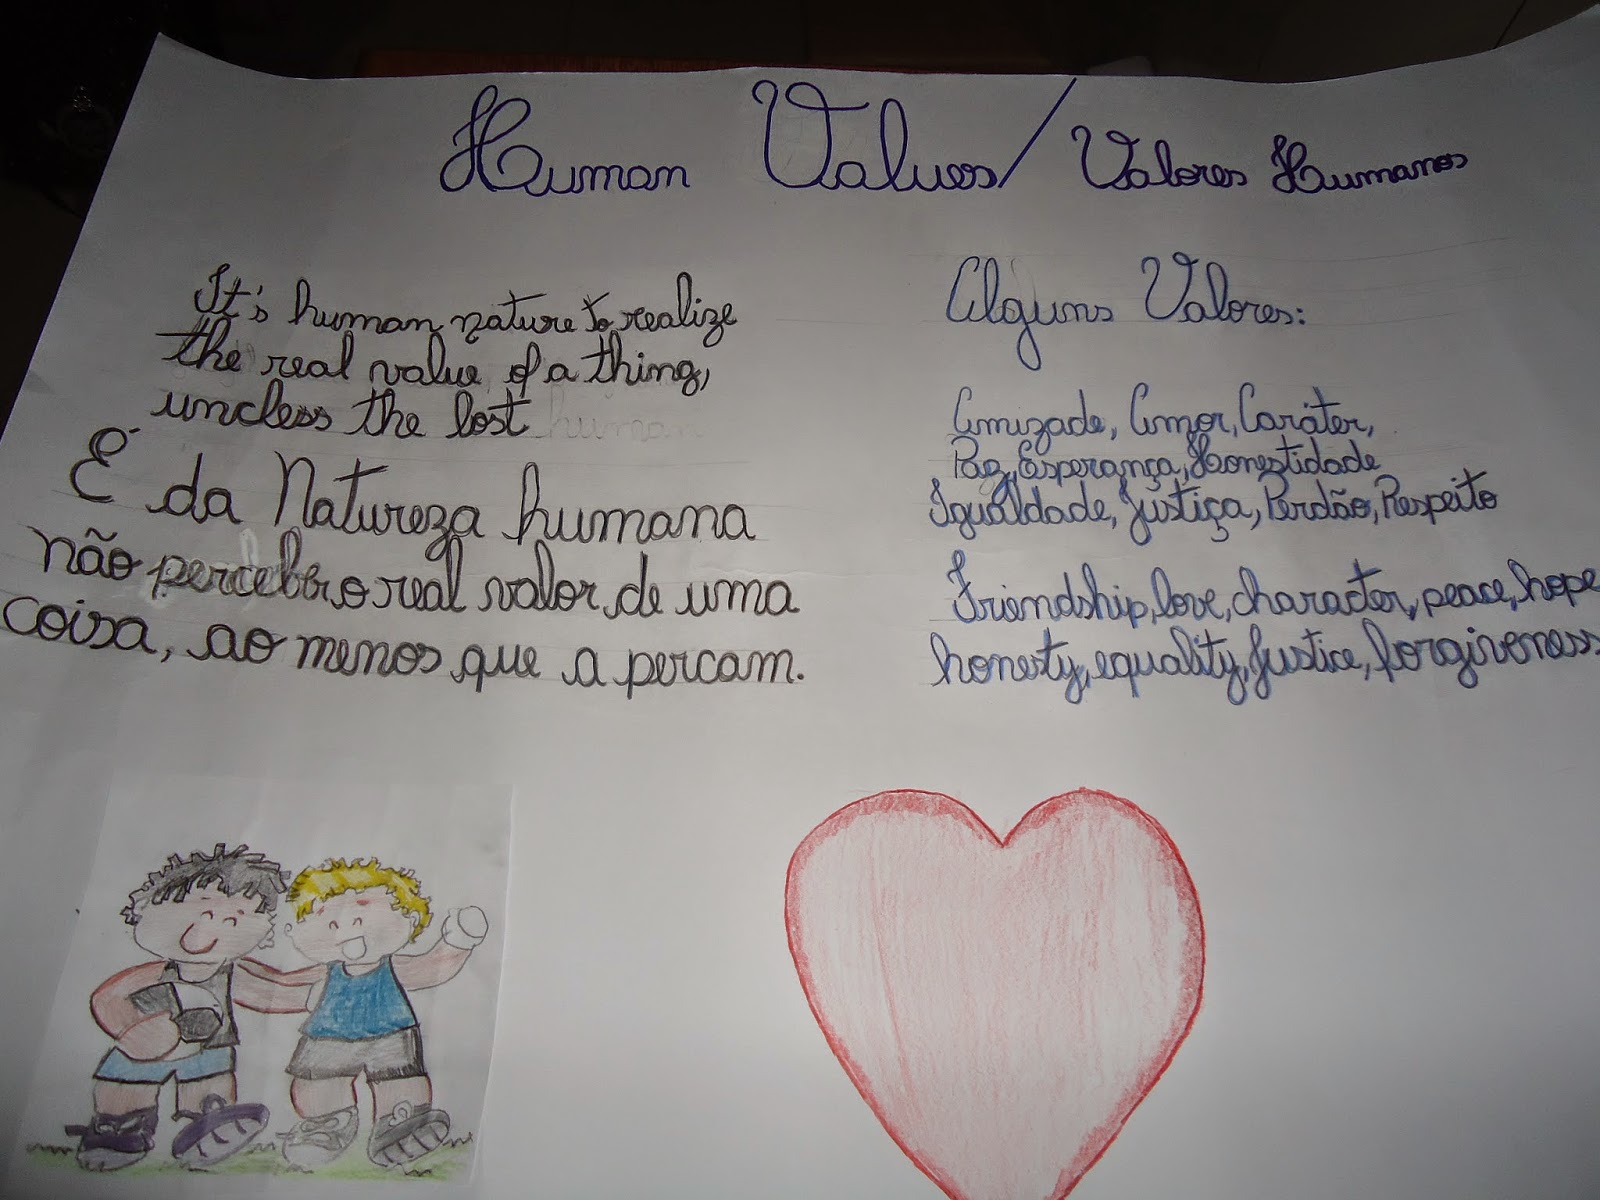 Human Values/ Valores Humanos
It's human nature to realize
the real value of a thing,
uncless the lost
É da Natureza humana
não perceber o real valor de uma
coisa, ao menos que a percam.
Alguns Valores:
Amizade, Amor, Caráter,
Paz, Esperança, Honestidade
Igualdade, Justiça, Perdão, Respeito
Friendship, love, character, peace, hope
honesty, equality, justice, forgiveness